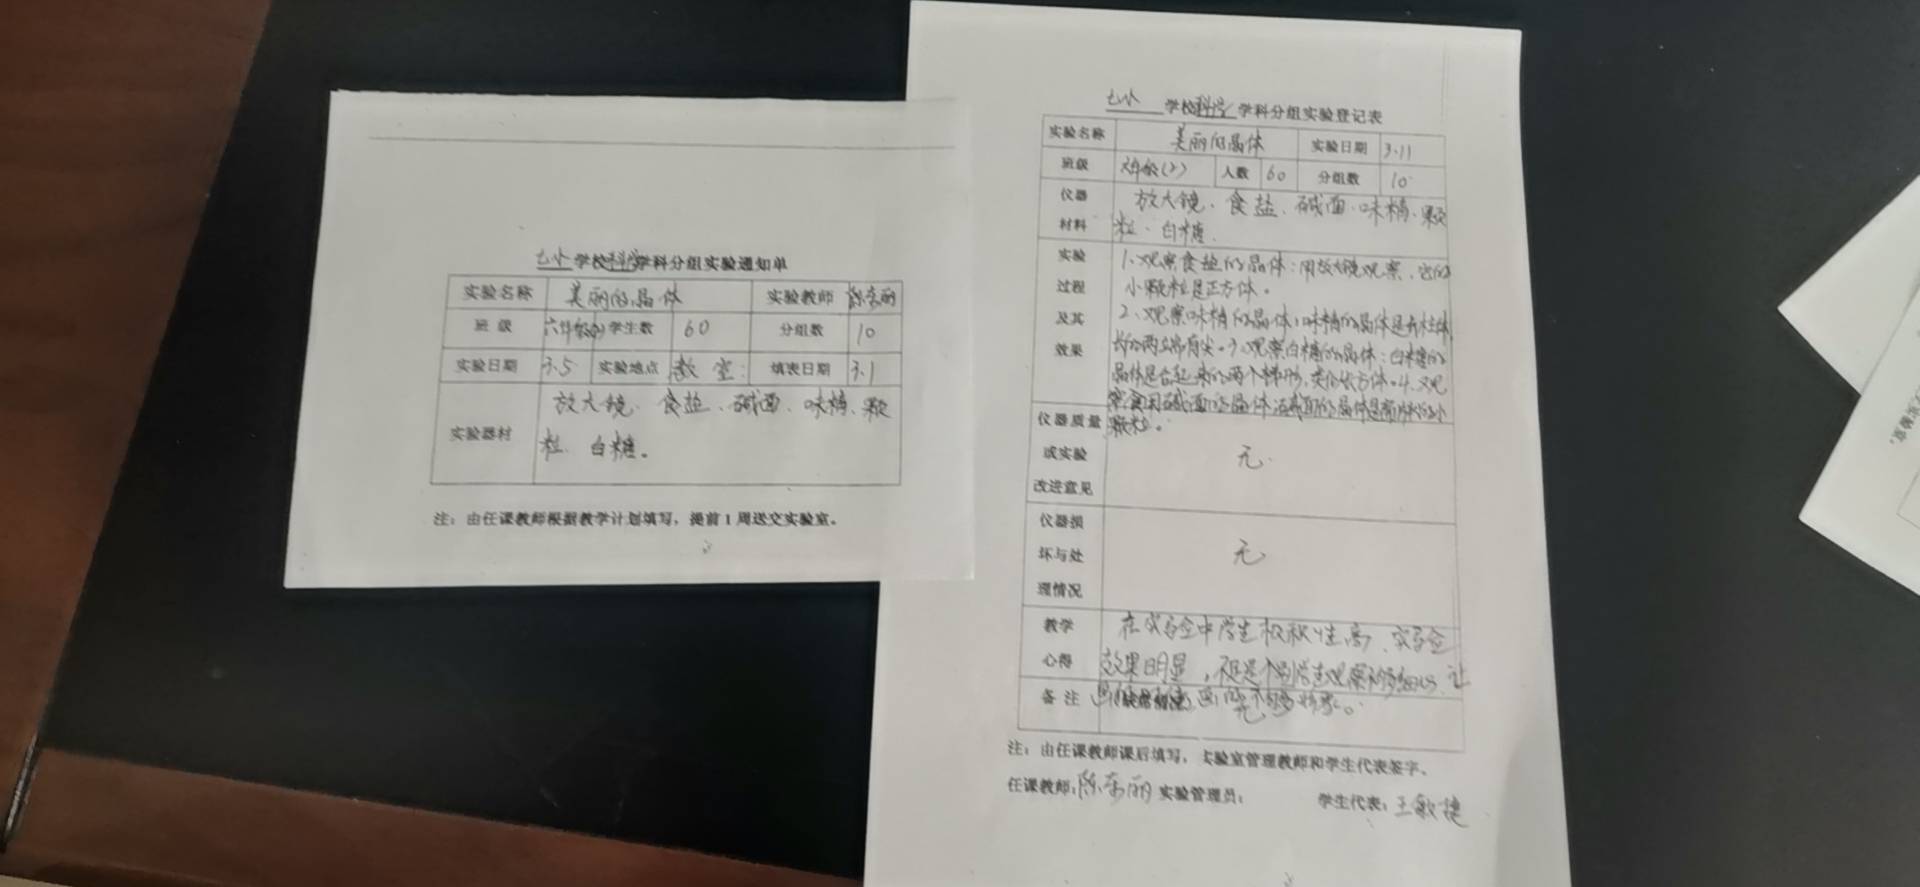 七小 学校科学学科分组实验通知单
实验名称 美丽的晶体 实验教师 陈东丽
班 级 六年级 学生数 60 分组数 10
实验日期 3.5 实验地点 教室 填表日期 3.1
实验器材 放大镜、食盐、碱面、味精、颗
粒、白糖。
注：由任课教师根据教学计划填写，提前1周送交实验室。
七小 学校科学学科分组实验登记表
实验名称 美丽的晶体 实验日期 3.11
班级 六年级(2) 人数 60 分组数 10
仪器材料 放大镜、食盐、碱面、味精、颗
粒、白糖。
实验过程及其效果 1、观察食盐的晶体：用放大镜观察，它的
小颗粒是正方体。
2、观察味精的晶体：味精的晶体是
长的两端有尖。3、观察白糖的晶体：白糖的
晶体是合起来的两个梯形，类似长方体。4、观
察食用碱面的晶体：碱面的晶体是小
颗粒。
仪器质量或实验改进意见 无.
仪器损坏与处理情况 无
教学心得 在实验中学生积极性高，实验
效果明显，但是个别学生观察不够细心，让
画的不够形象。
备 注 （缺席情况） 无
注：由任课教师课后填写，实验室管理教师和学生代表签字。
任课教师：陈东丽 实验管理员： 学生代表：王敏捷
实验室。